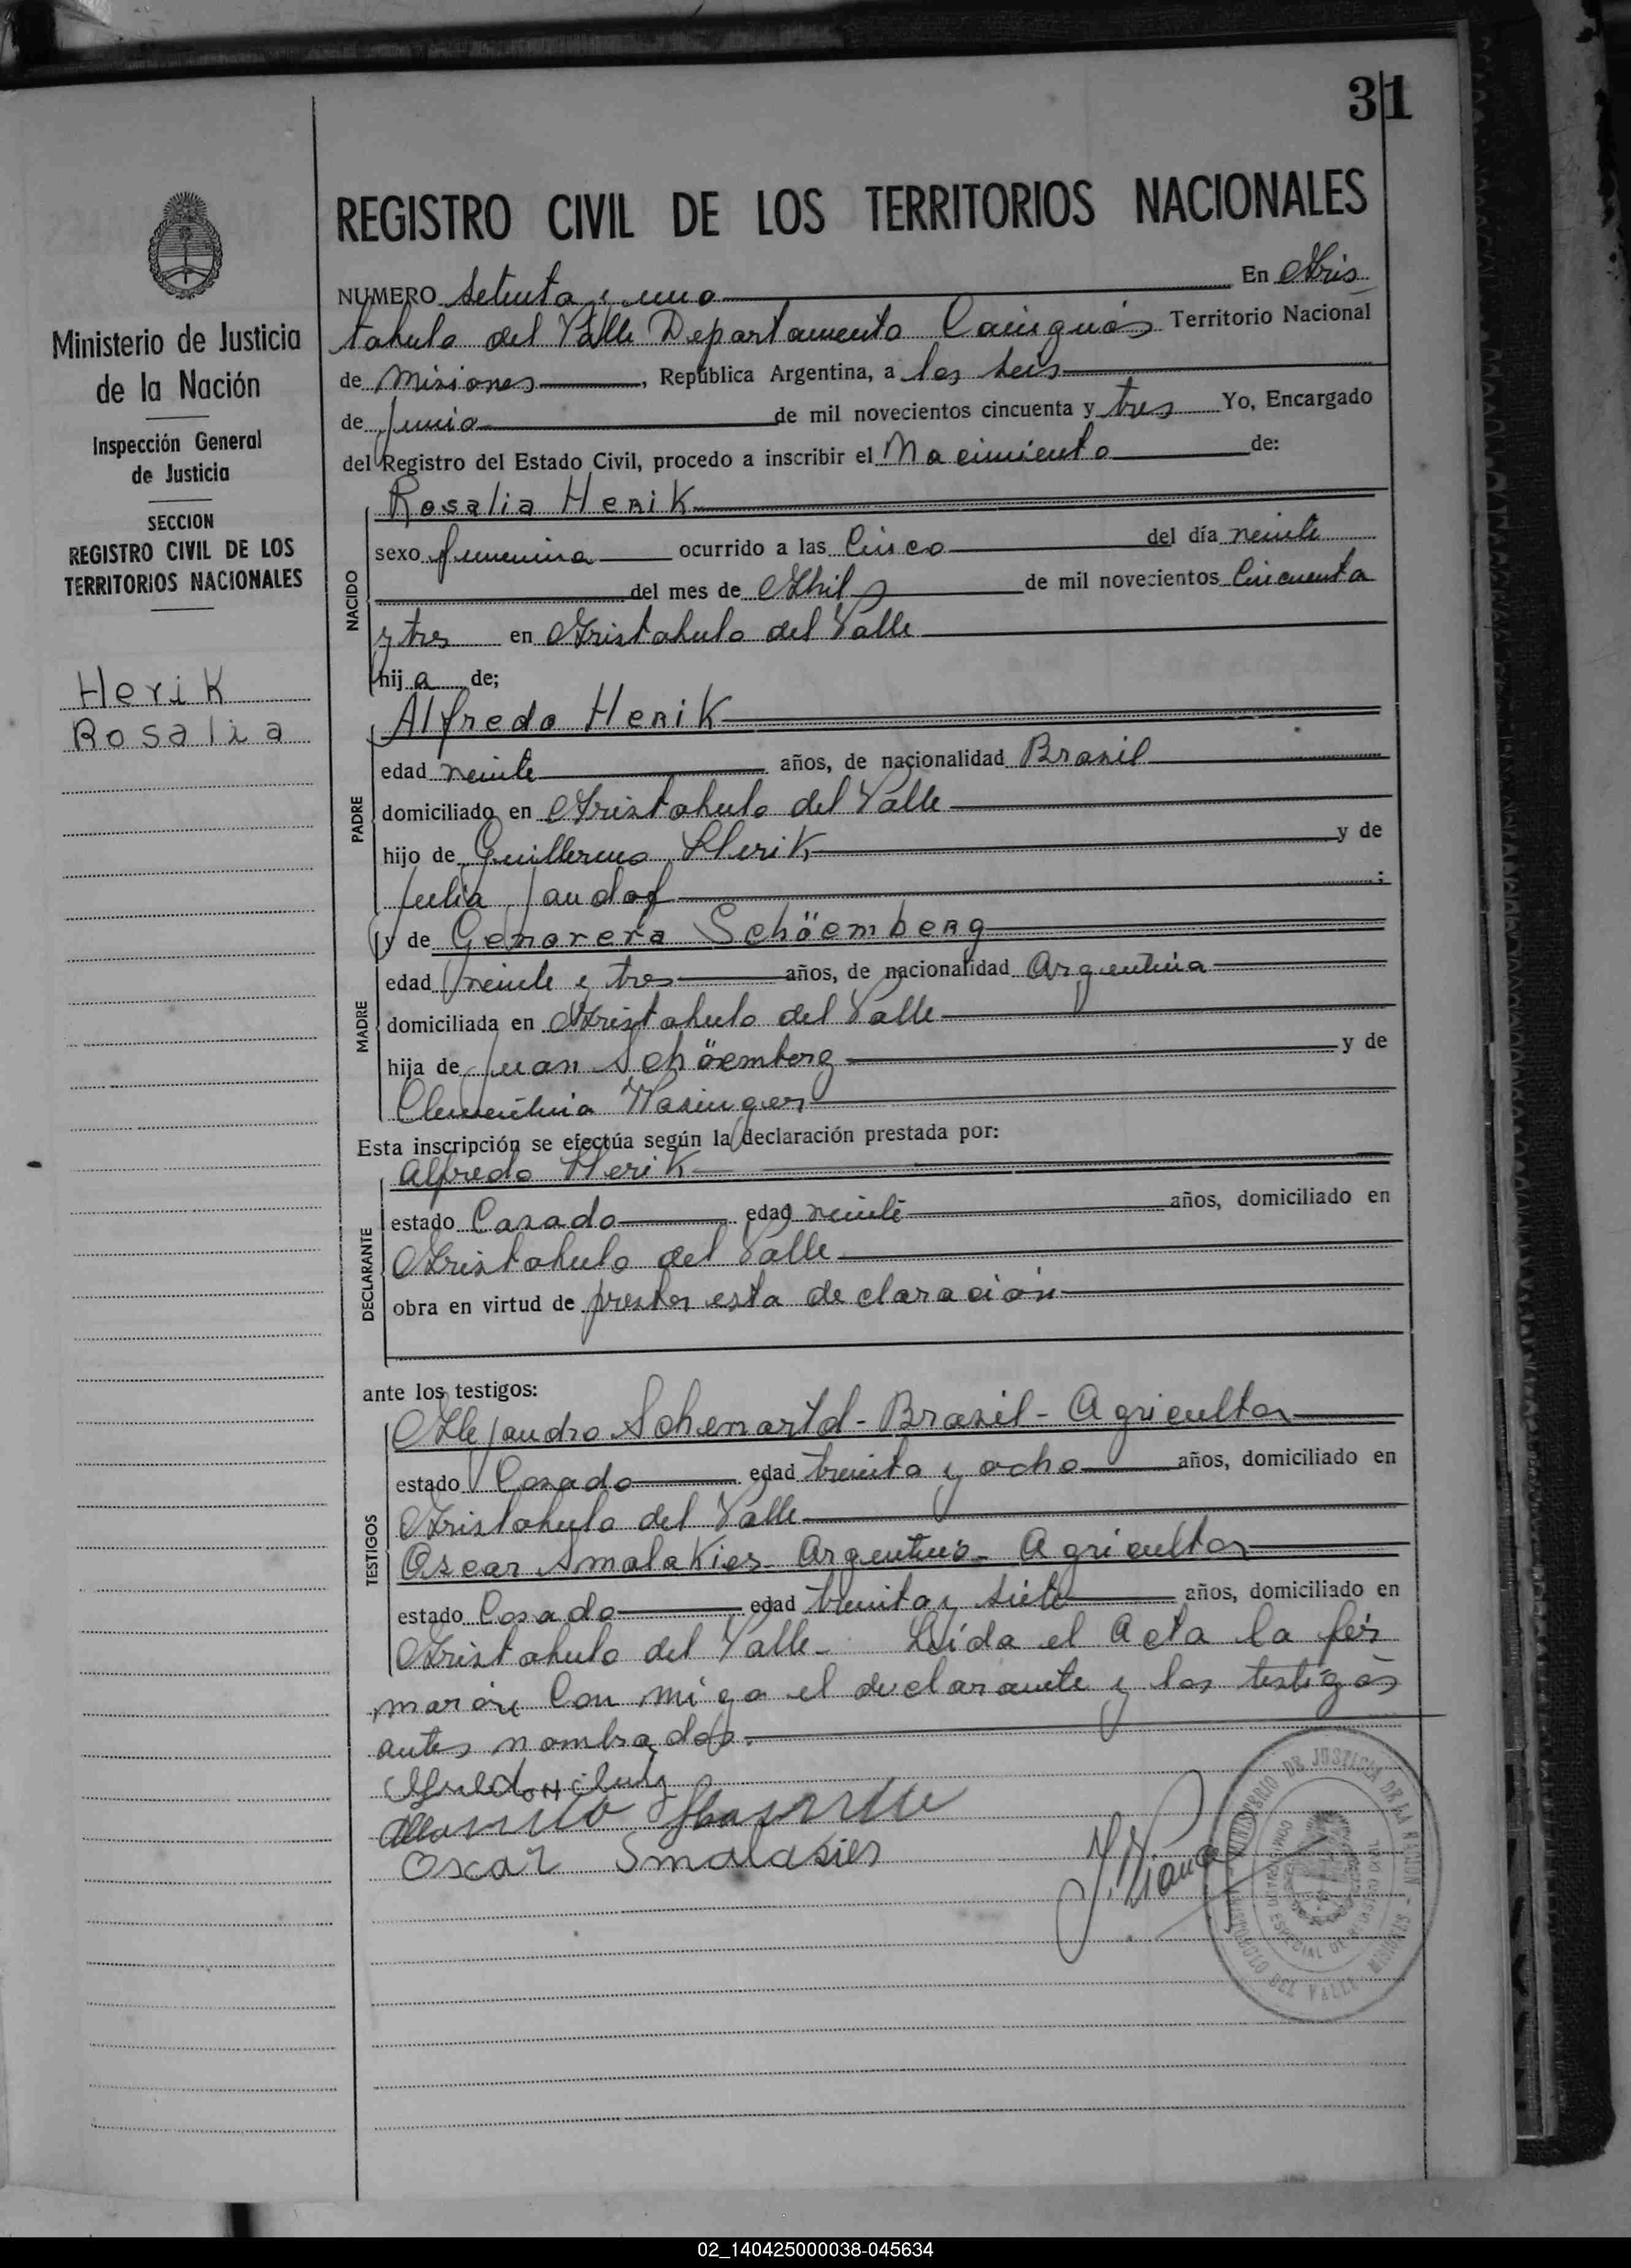 31
REGISTRO CIVIL DE LOS TERRITORIOS NACIONALES
Ministerio de Justicia
de la Nación
Inspección General
de Justicia
SECCION
REGISTRO CIVIL DE LOS
TERRITORIOS NACIONALES
Herik
Rosalia
NUMERO setenta y uno En Aris
tobulo del Valle Departamento Cainguás Territorio Nacional
de Misiones, República Argentina, a los seis
de Junio de mil novecientos cincuenta y tres Yo, Encargado
del Registro del Estado Civil, procedo a inscribir el Nacimiento de:
NACIDO
Rosalia Herik
sexo femenina ocurrido a las Cinco del día veinte
del mes de Abril de mil novecientos Cincuenta
y tres en Aristobulo del Valle
hija de;
PADRE
Alfredo Herik
edad veinte años, de nacionalidad Brasil
domiciliado en Aristobulo del Valle
hijo de Guillermo Herik y de
Julia Jandof;
MADRE
y de Schöemberg
edad veinte y tres años, de nacionalidad Argentina
domiciliada en Aristobulo del Valle
hija de Juan Schöemberg y de
Clementina
Esta inscripción se efectúa según la declaración prestada por:
DECLARANTE
Alfredo Herik
estado Casado edad veinte años, domiciliado en
Aristobulo del Valle
obra en virtud de prestar esta declaración
ante los testigos:
TESTIGOS
Alejandro - Brasil - Agricultor
estado Casado edad treinta y ocho años, domiciliado en
Aristobulo del Valle
Oscar Smalakies - Argentino - Agricultor
estado Casado edad treinta y siete años, domiciliado en
Aristobulo del Valle - Leída el Acta la fir
marón Con migo el declarante y los testigos
antes nombrados.
Oscar Smalakies
MINISTERIO DE JUSTICIA DE LA NACION
ARISTOBULO DEL VALLE - MISIONES
02_140425000038-045634